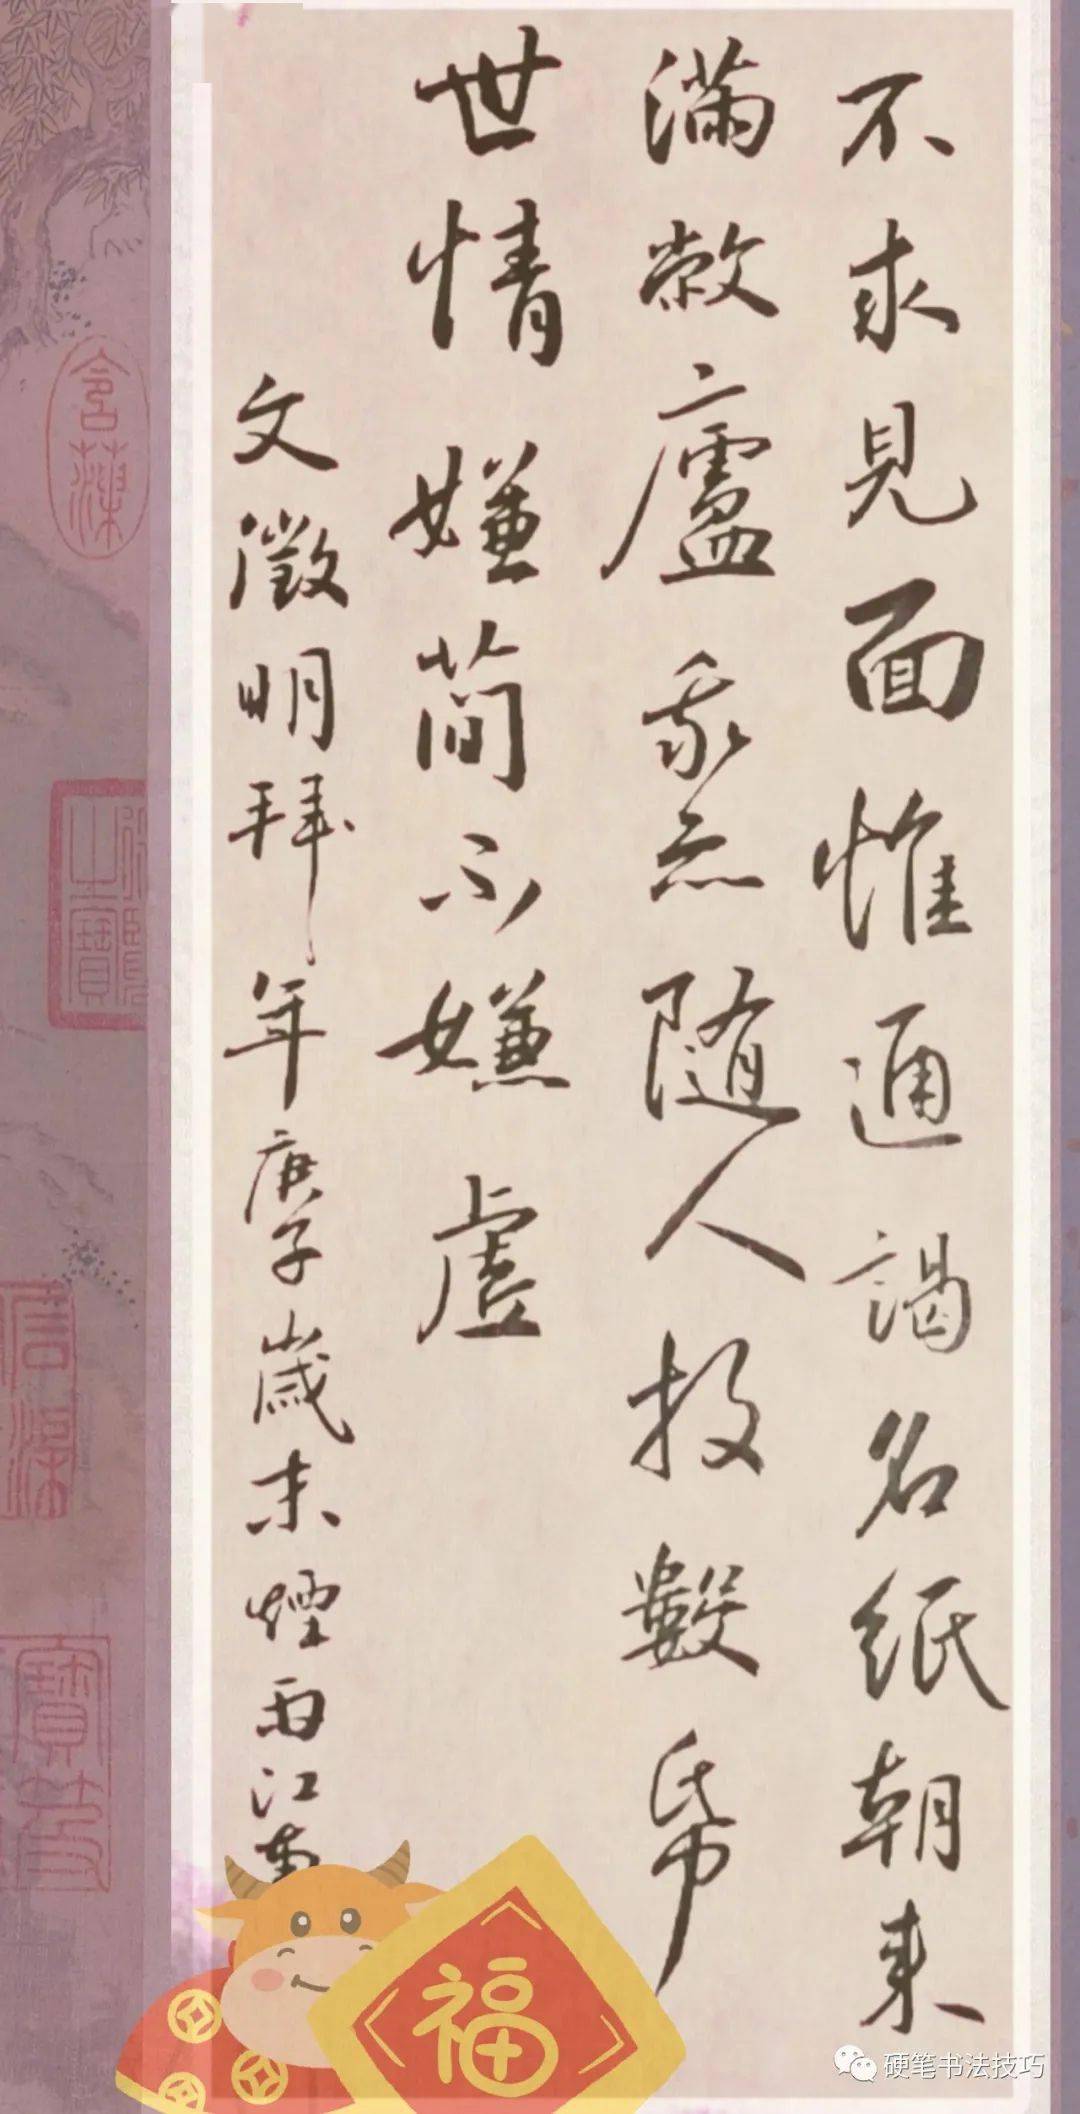 不求見面惟通謁名紙朝来
滿敝廬我亦随人投數帋
世情嫌簡不嫌虛
文徵明拜年庚子歲末煙雨江南
福
硬笔书法技巧